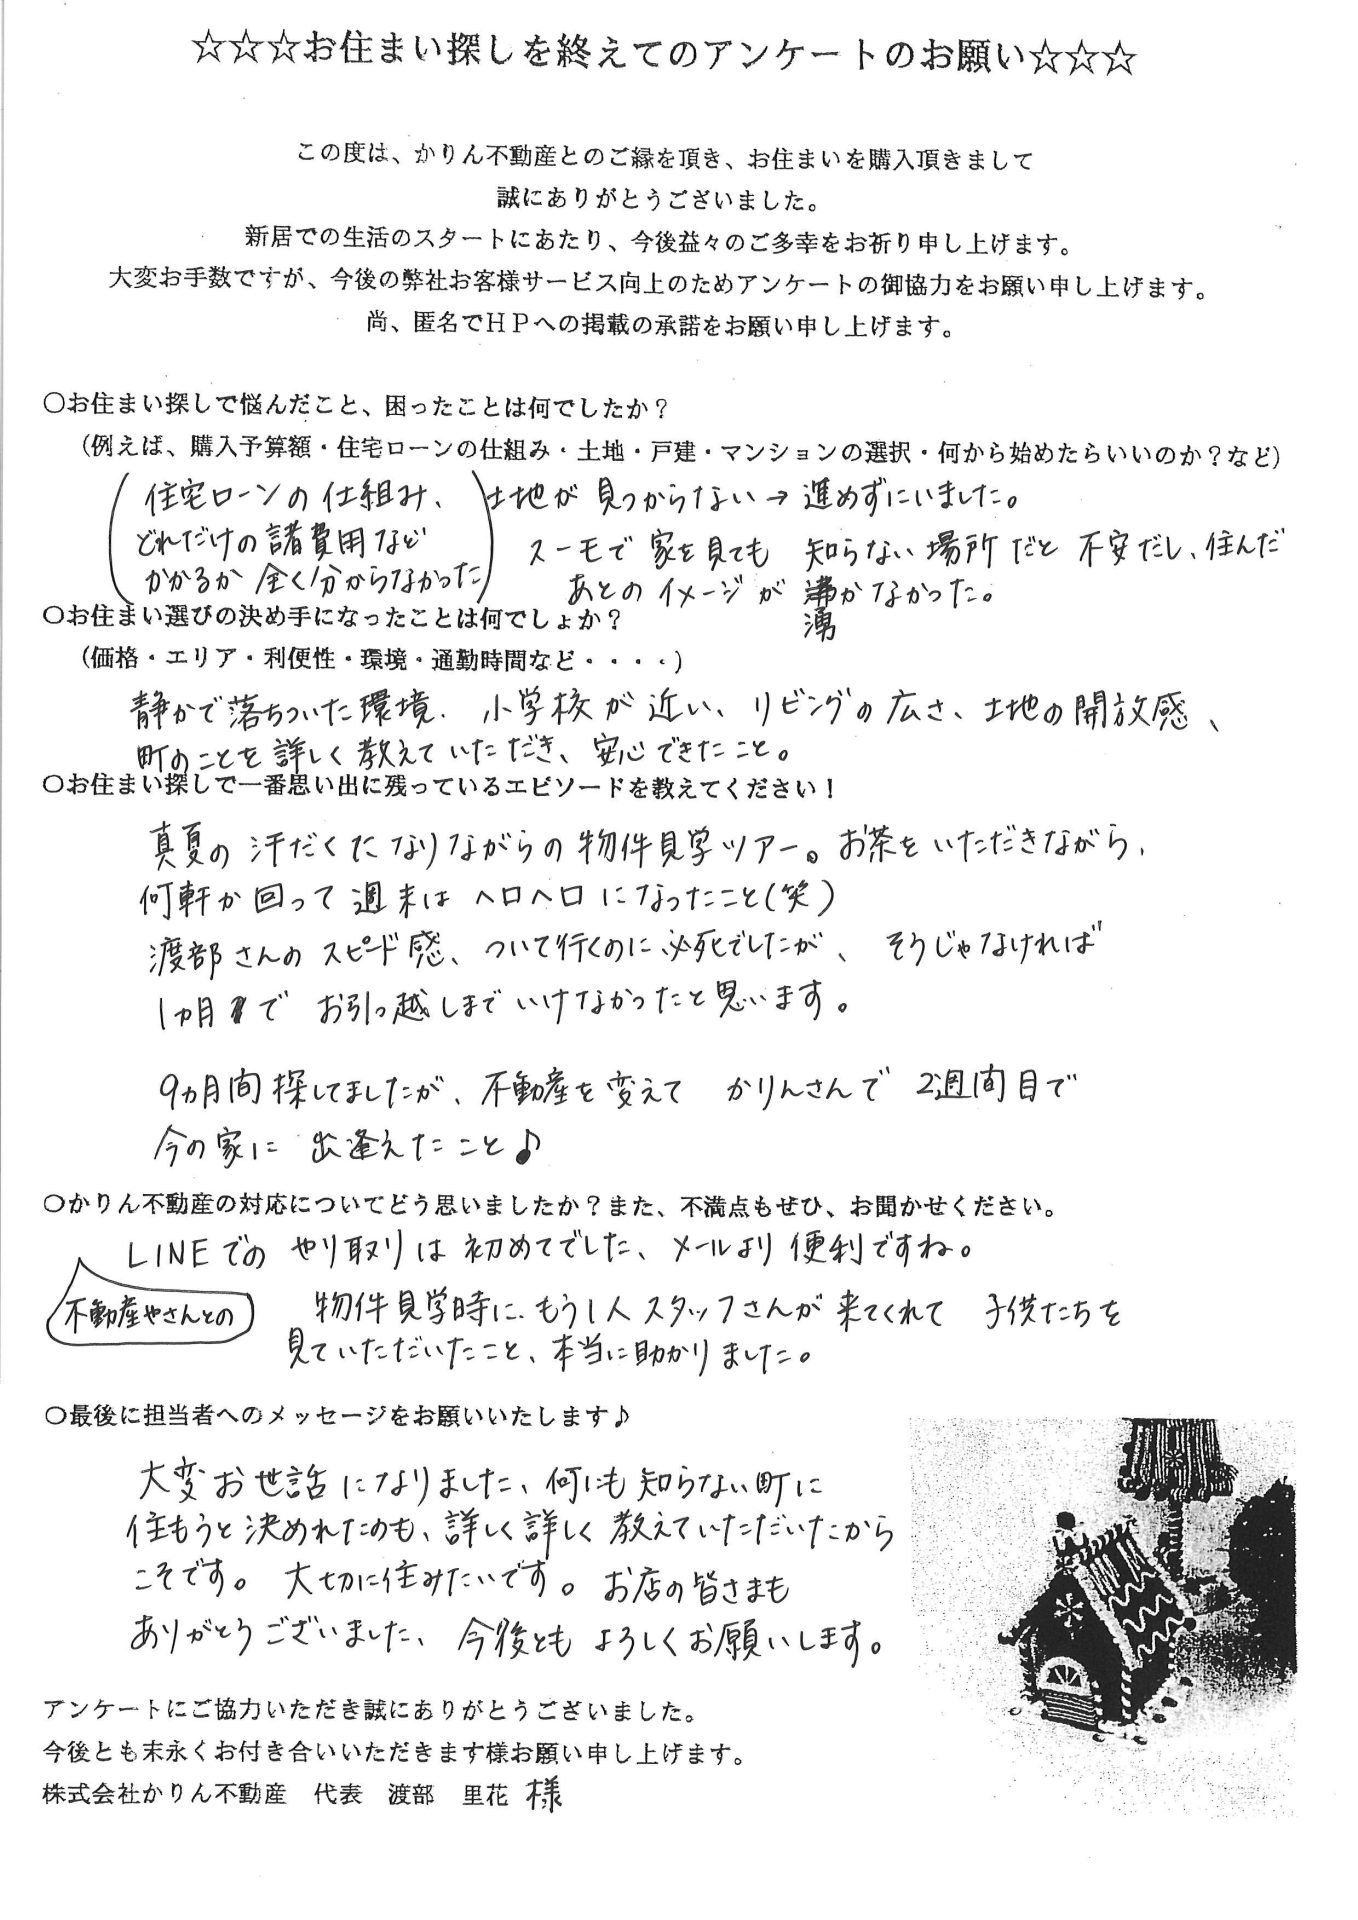 ☆☆☆お住まい探しを終えてのアンケートのお願い☆☆☆
この度は、かりん不動産とのご縁を頂き、お住まいを購入頂きまして
誠にありがとうございました。
新居での生活のスタートにあたり、今後益々のご多幸をお祈り申し上げます。
大変お手数ですが、今後の弊社お客様サービス向上のためアンケートの御協力をお願い申し上げます。
尚、匿名でHPへの掲載の承諾をお願い申し上げます。
○お住まい探しで悩んだこと、困ったことは何でしたか?
(例えば、購入予算額・住宅ローンの仕組み・土地・戸建・マンションの選択・何から始めたらいいのか?など)
(住宅ローンの仕組み、
どれだけの諸費用など
かかるか全く分からなかった)
土地が見つからない→進めずにいました。
スーモで家を見ても 知らない場所だと不安だし、住んだ
あとのイメージが湧かなかった。
○お住まい選びの決め手になったことは何でしょか?
(価格・エリア・利便性・環境・通勤時間など・・・・)
静かで落ちついた環境、小学校が近い、リビングの広さ、土地の開放感、
町のことを詳しく教えていただき、安心できたこと。
○お住まい探しで一番思い出に残っているエピソードを教えてください!
真夏の汗だくになりながらの物件見学ツアー。お茶をいただきながら、
何軒か回って週末はヘロヘロになったこと(笑)
渡部さんのスピード感、ついて行くのに必死でしたが、そうじゃなければ
1ヵ月でお引っ越しまでいけなかったと思います。
9ヵ月間探してましたが、不動産を変えて かりんさんで2週間目で
今の家に出逢えたこと♪
○かりん不動産の対応についてどう思いましたか?また、不満点もぜひ、お聞かせください。
LINEでのやり取りは初めてでした、メールより便利ですね。
不動産やさんとの
物件見学時に、もう1人スタッフさんが来てくれて 子供たちを
見ていただいたこと、本当に助かりました。
○最後に担当者へのメッセージをお願いいたします♪
大変お世話になりました、何にも知らない町に
住もうと決めれたのも、詳しく詳しく教えていただいたから
こそです。大切に住みたいです。お店の皆さまも
ありがとうございました、今後ともよろしくお願いします。
アンケートにご協力いただき誠にありがとうございました。
今後とも末永くお付き合いいただきます様お願い申し上げます。
株式会社かりん不動産 代表 渡部 里花 様